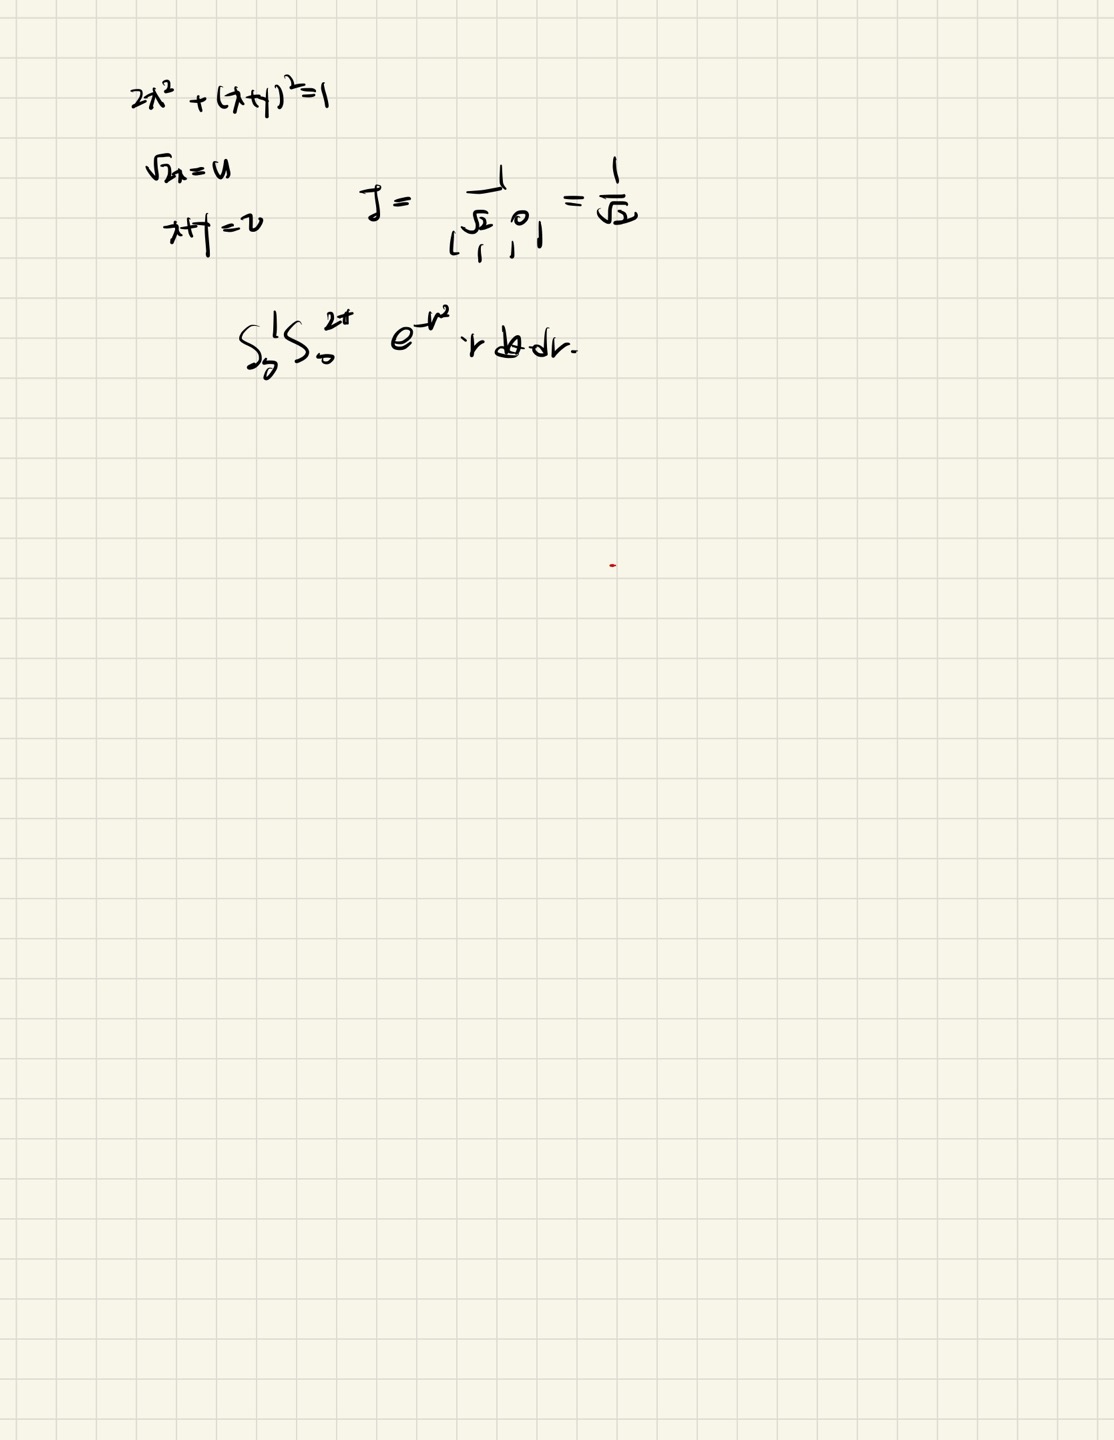 2x² + (x+y)² = 1
√2x = u
x+y = v
J = 1 / |√2 0; 1 1| = 1/√2
∫₀¹ ∫₀^2π e^-r² · r dθ dr.